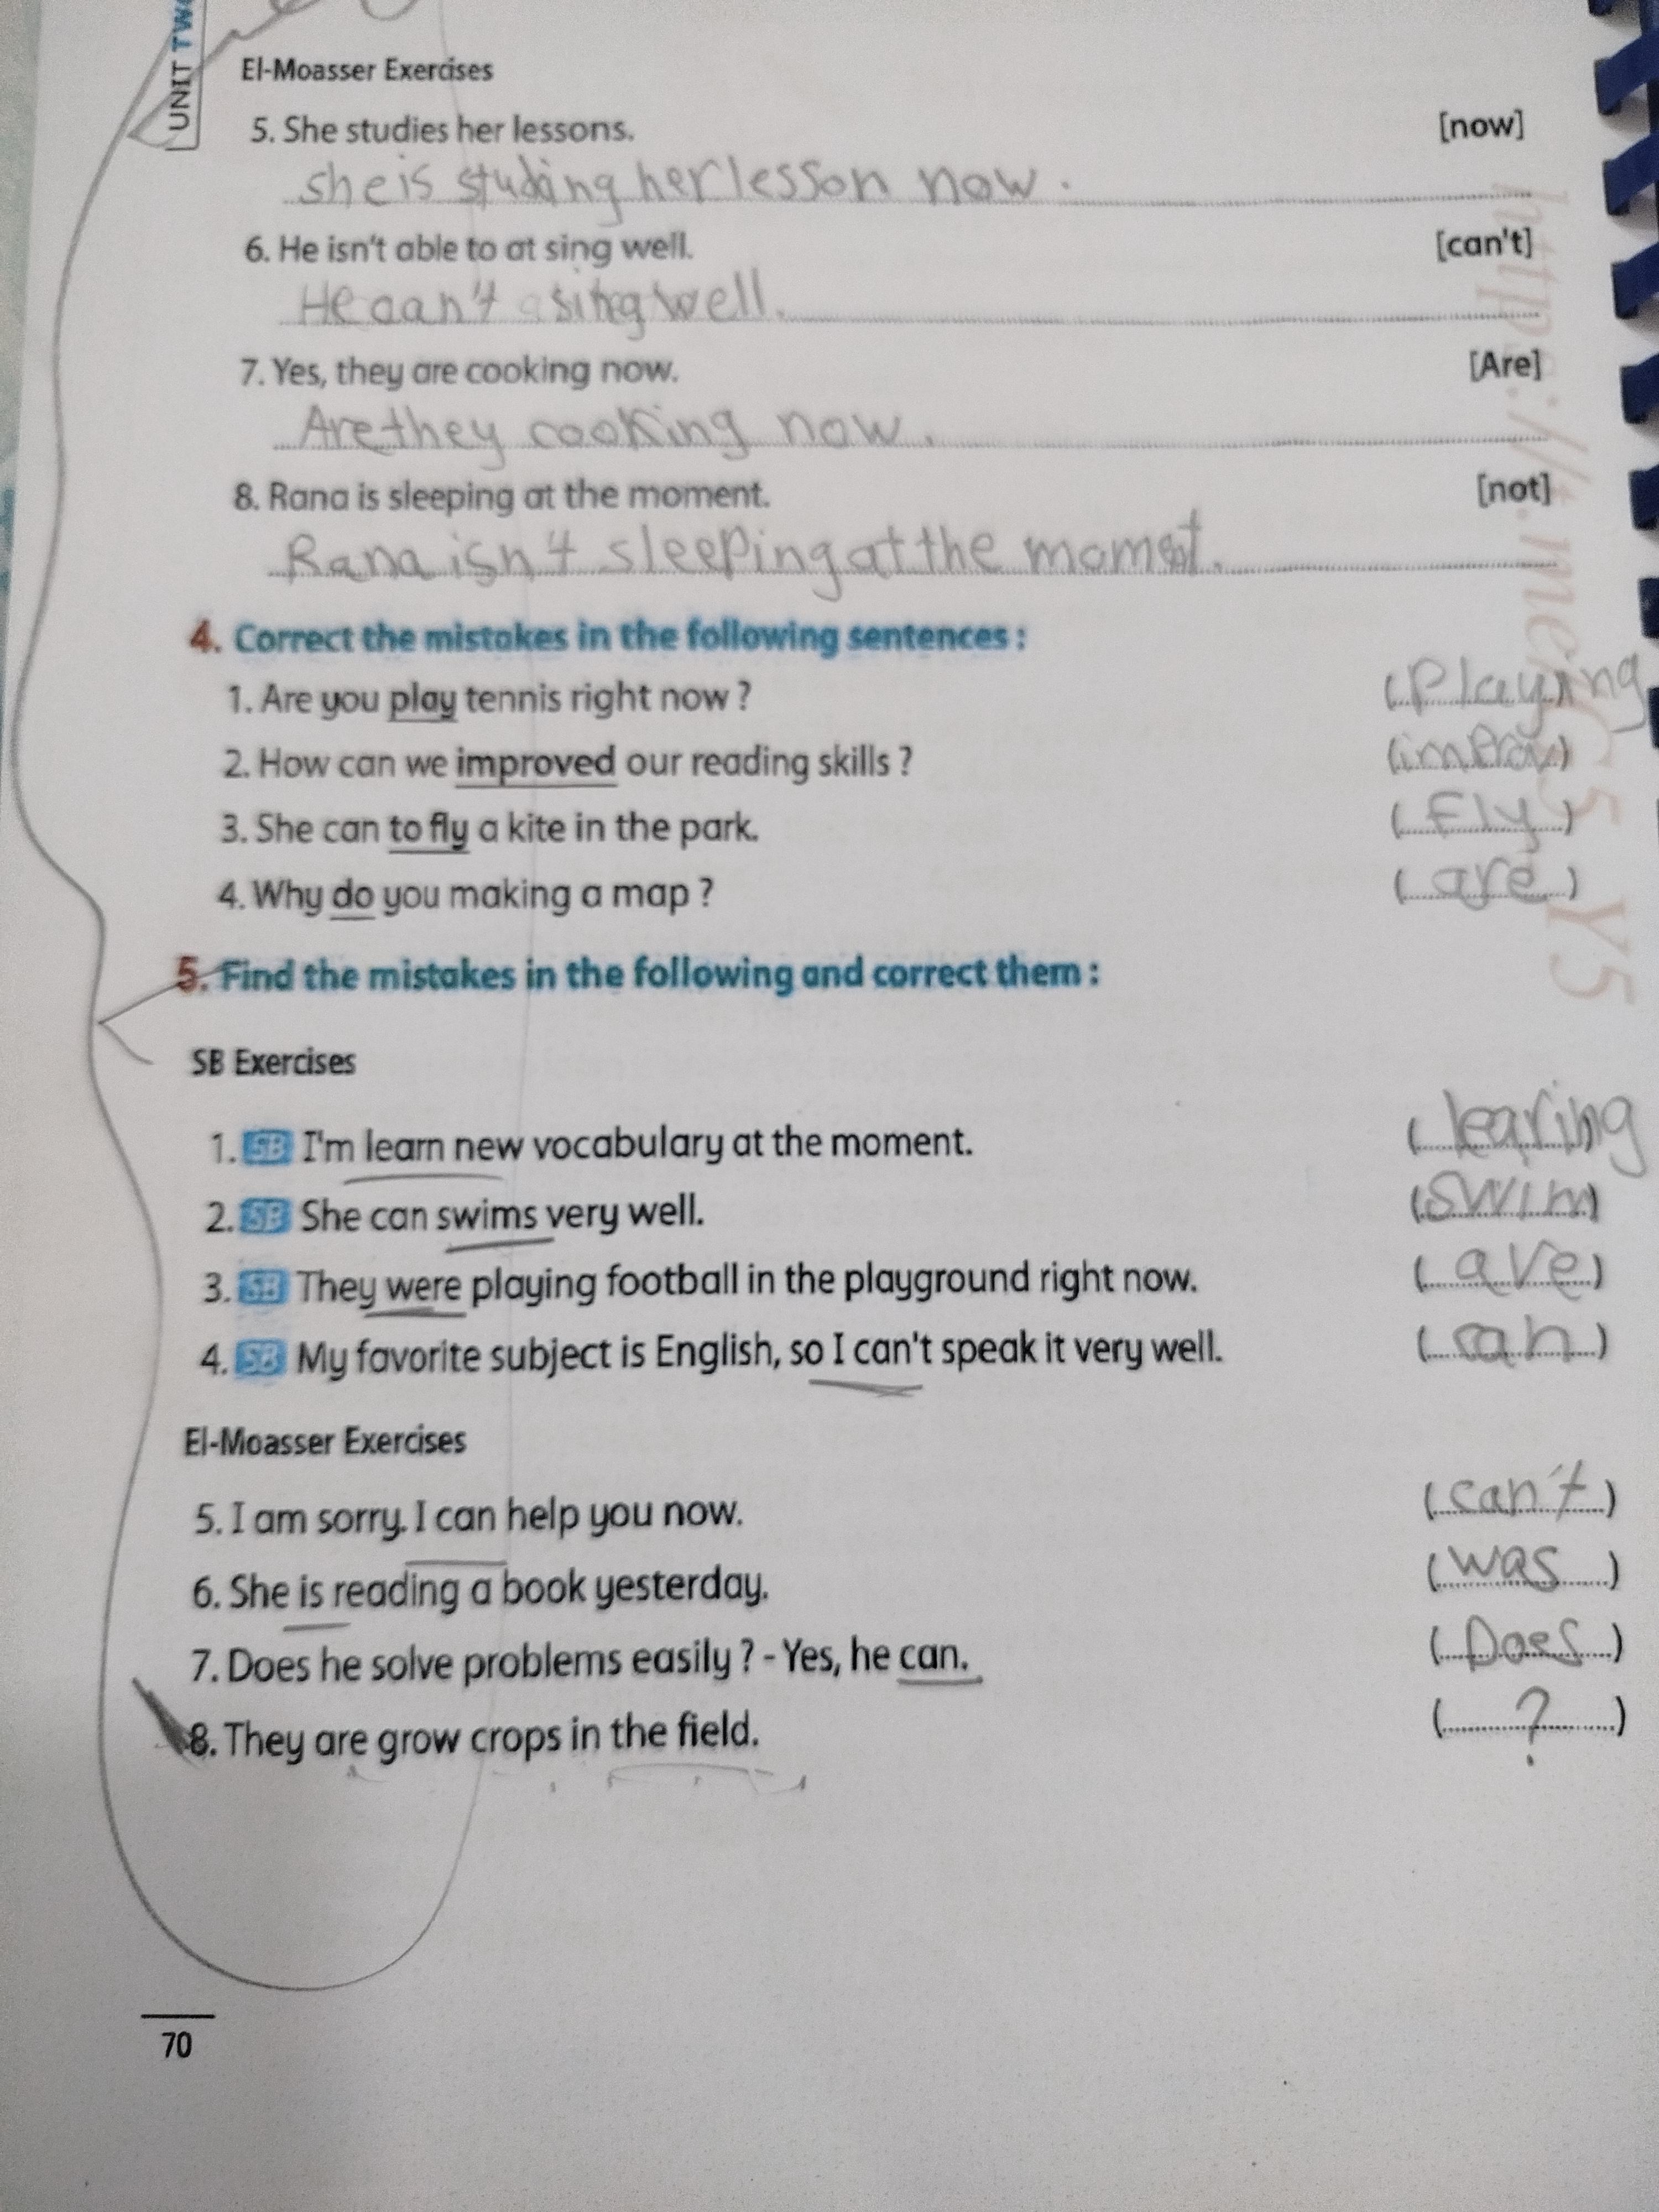 UNIT TWO
El-Moasser Exercises
5. She studies her lessons. [now]
she is studing her lesson now.
6. He isn't able to at sing well. [can't]
He can't sing well.
7. Yes, they are cooking now. [Are]
Are they cooking now.
8. Rana is sleeping at the moment. [not]
Rana isn't sleeping at the moment.
4. Correct the mistakes in the following sentences :
1. Are you play tennis right now ? (playing)
2. How can we improved our reading skills ? (improv)
3. She can to fly a kite in the park. (Fly)
4. Why do you making a map ? (are)
5. Find the mistakes in the following and correct them :
SB Exercises
1. SB I'm learn new vocabulary at the moment. (learing)
2. SB She can swims very well. (swim)
3. SB They were playing football in the playground right now. (are)
4. SB My favorite subject is English, so I can't speak it very well. (can)
El-Moasser Exercises
5. I am sorry. I can help you now. (can't)
6. She is reading a book yesterday. (was)
7. Does he solve problems easily ? - Yes, he can. (Does)
8. They are grow crops in the field. (?)
70